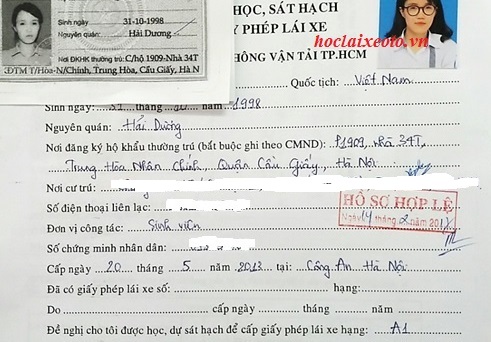 Sinh ngày 31-10-1998
Nguyên quán: Hải Dương
Nơi ĐKHK thường trú: C/hộ 1909-Nhà 34T
ĐTM T/Hòa-N/Chính, Trung Hòa, Cầu Giấy, Hà N
HỌC, SÁT HẠCH
Y PHÉP LÁI XE
hoclaixeoto.vn
HÔNG VẬN TẢI TP.HCM
Quốc tịch: Việt Nam
Sinh ngày: 31 tháng 10 năm 1998
Nguyên quán: Hải Dương
Nơi đăng ký hộ khẩu thường trú (bắt buộc ghi theo CMND): P1909, nhà 34T,
Trung Hòa Nhân Chính, Quận Cầu Giấy, Hà Nội
Nơi cư trú:
Số điện thoại liên lạc:
HỒ SƠ HỢP LỆ
Ngày 14 tháng 2 năm 201
Đơn vị công tác: Sinh viên
Số chứng minh nhân dân:
Cấp ngày 20 tháng 5 năm 2013 tại: Công An Hà Nội
Đã có giấy phép lái xe số: hạng:
Do cấp ngày tháng năm
Đề nghị cho tôi được học, dự sát hạch để cấp giấy phép lái xe hạng: A1